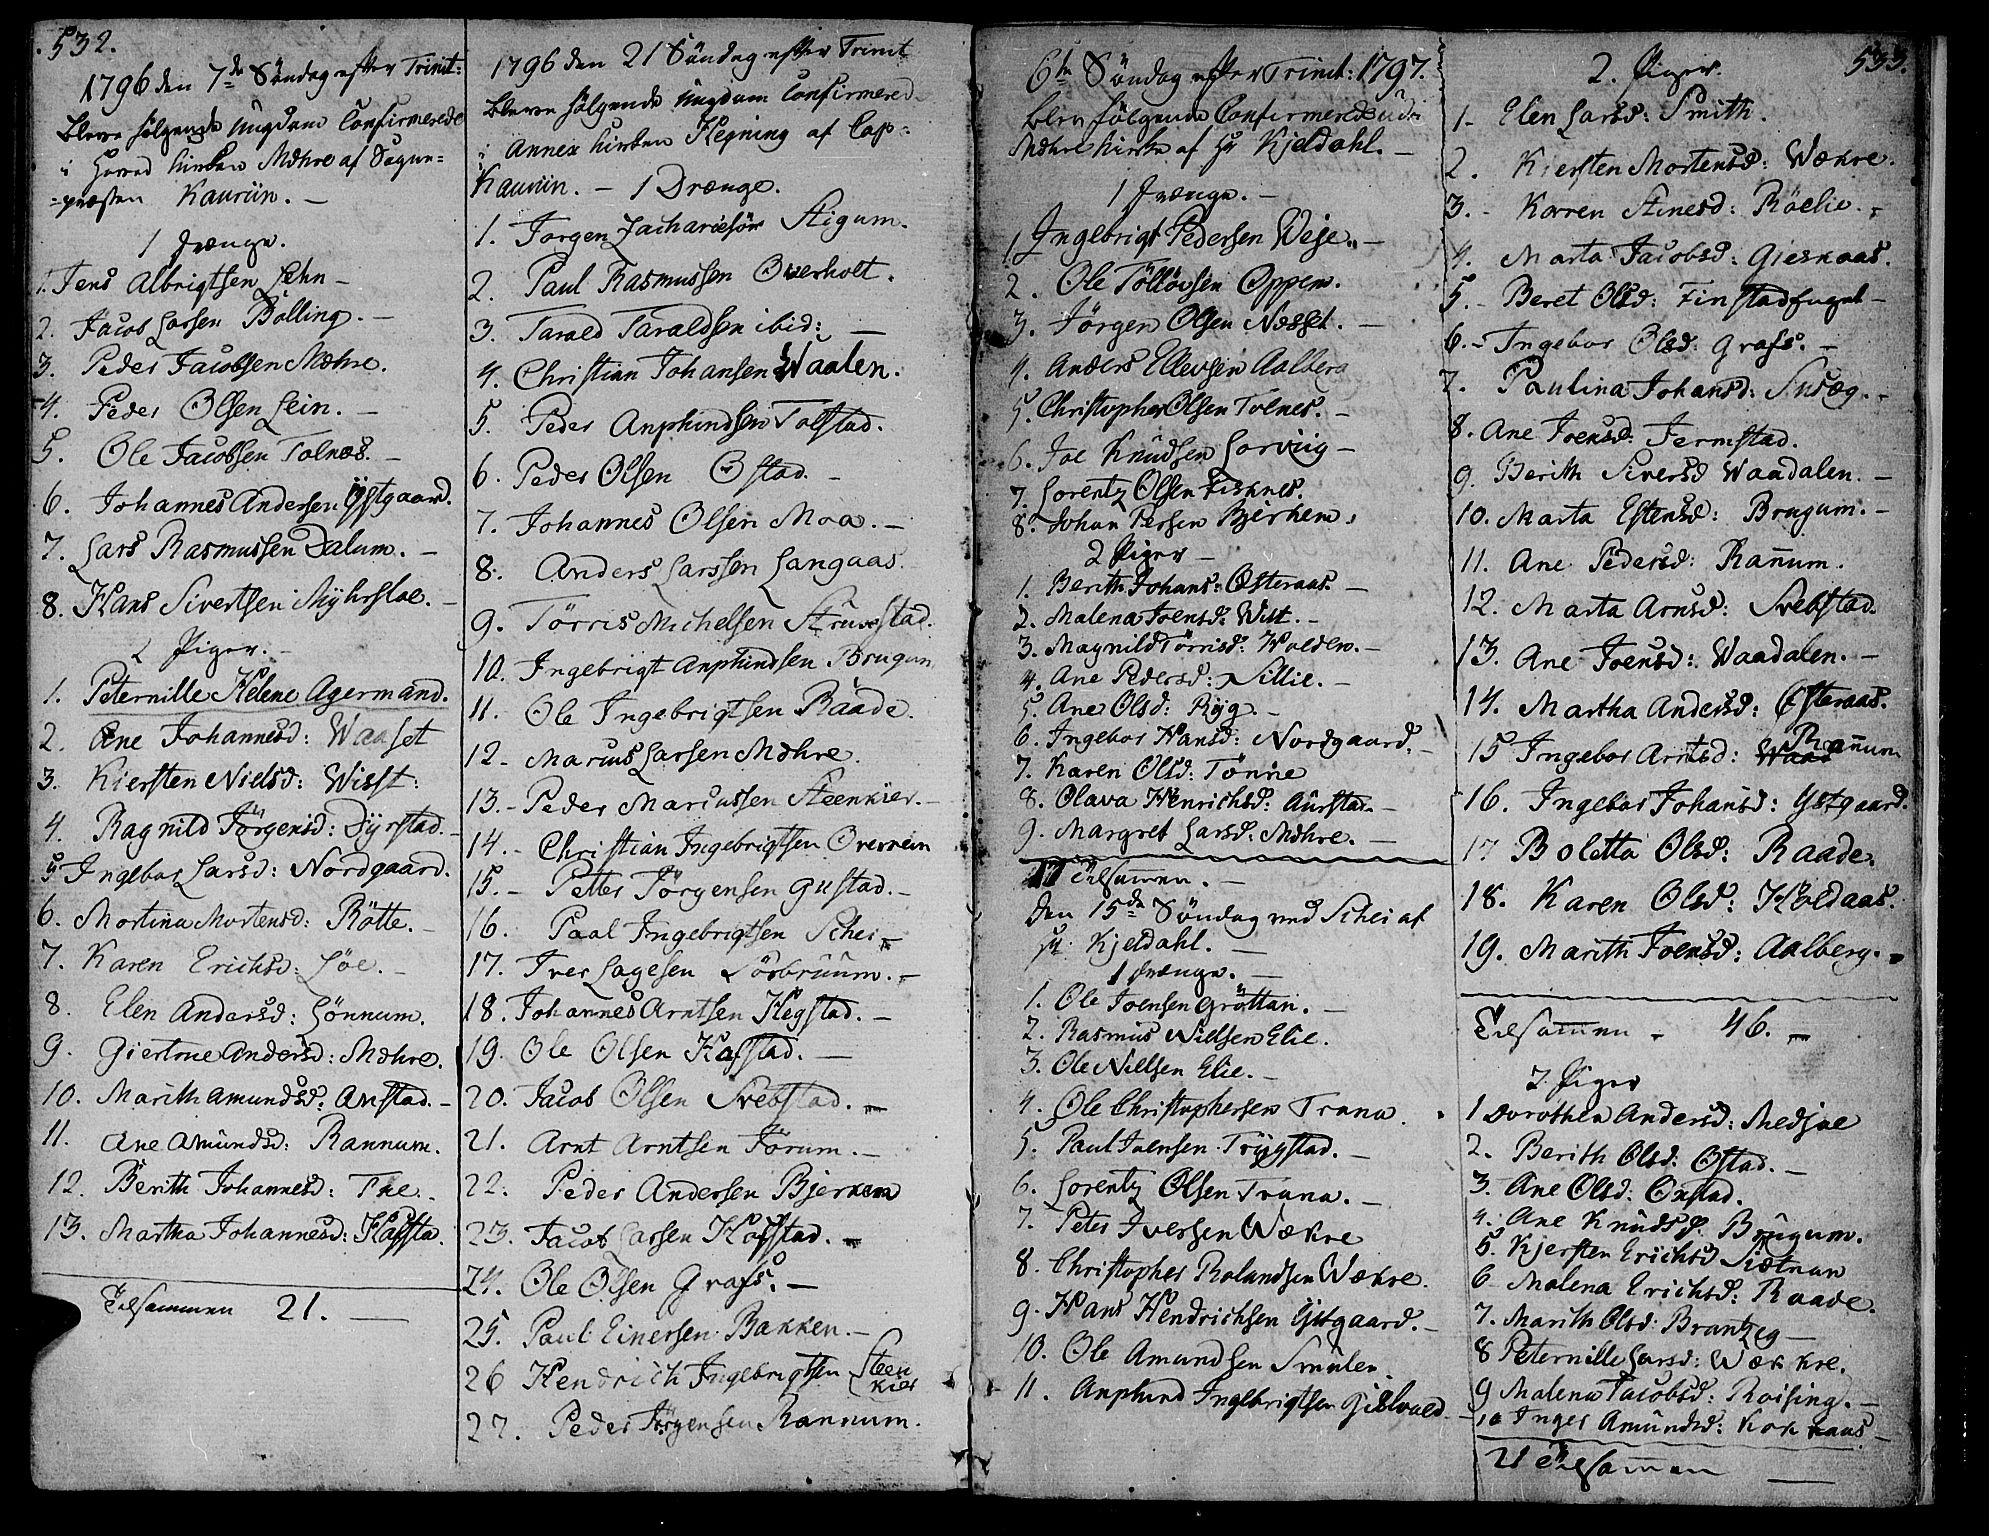 532.
1796 den 7de Söndag efter Trinit:
bleve følgende Ungdom Confirmerede
i Hoved Kirken Mæhre af Sogne=
=præsten Kaurin. —
1 Drenge.
1. Jens Albrigtsen Lehn —
2. Jacob Larsen Bölling. —
3. Peder Jacobsen Mæhre.
4. Peder Olsen Lein. —
5. Ole Jacobsen Tolnæs. —
6. Johannes Andersen Østgaard.
7. Lars Rasmussen Dalum. —
8. Hans Sivertsen Myhrsloe. —
2 Piger. —
1. Peternille Helene Agermand.
2. Ane Johannesd: Waaset
3. Kiersten Nielsd: Wisst:
4. Ragnild Jörgensd: Dyrstad. —
5 Ingebor Larsd: Nordgaard.
6. Mortina Mortensd: Rötte. —
7. Karen Erichsd: Löe. —
8. Elen Andersd: Lönnum.
9. Giertrue Andersd: Mæhre.
10. Marith Amundsd: Anstad. —
11. Ane Amundsd: Rannum.
12. Berith Johannesd: Tne.
13. Martha Johannesd: Hafsta.
Tilsammen 21. —
1796 den 21 Söndag efter Trinit
bleve følgende Ungdom Confirmered
i Annex Kirken Hegning af Cap:
Kaurin. — 1 Drænge.
1. Jorgen Zachariesön Stigum.
2. Paul Rasmussen Overholt.
3. Tarald Taraldsen ibid: —
4. Christian Johansen Waalen.
5. Peder Anphindsen Tolstad.
6. Peder Olsen Østad. —
7. Johannes Olsen Moa. —
8. Anders Larssen Langaas.
9. Törris Michelsen Struvstad.
10. Ingebrigt Anphindsen Brugun
11. Ole Ingebrigtsen Raade.
12. Marius Larsen Mæhre.
13. Peder Mariussen Steenkier. —
14. Christian Ingebrigtsen Overrein
15. Petter Jörgensen Gustad. —
16. Paal Ingebrigtsen Schei —
17. Iver Lagesen Lörbruum. —
18. Johannes Arntsen Hegstad. —
19. Ole Olsen Hafstad. —
20. Jacob Olsen Svebstad. —
21. Arnt Arntsen Forum. —
22. Peder Andersen Bjerkem
23. Jacob Larsen Hofstad. —
24. Ole Olsen Grafs. —
25. Paul Einersen Bakken. —
26 Hendrich Ingebrigtsen Steen
kier
27. Peder Jörgensen Rannum.
6te Söndag efter Trinit: 1797.
blev følgende Confirmerede udi
Mæhre Kirke af Hr Kjeldahl. —
1 Drænge. —
1 Ingebrigt Pedersen Weje. —
2. Ole Töllövsen Oppem.
3. Jörgen Olsen Næsset. —
4. Anders Ellevsen Aalberg
5. Christopher Olsen Tolnes. —
6. Joe Knudsen Lorvig —
7. Lorentz Olsen Fisknes.
8. Johan Persen Bjerkem.
2 Piger —
1. Berith Johans: Østeraas. —
2. Malena Joensd: Wist. —
3. Magnild Törrisd: Walden. —
4. Ane Pedersd: Sillie. —
5. Ane Olsd: Ryg. —
6. Ingebor Hansd: Nordgaard. —
7. Karen Olsd: Tönne
8. Olava Henrichsd: Aurstad. —
9. Margret Larsd: Mæhre. —
17 Tilsammen. —
Den 15de Söndag ved Schei af
Hr. Kjeldahl. —
1 Drænge. —
1. Ole Joensen Gröttan. —
2. Rasmus Nielsen Elie.
3. Ole Nielsen Elie. —
4. Ole Christophersen Trana.
5. Paul Joensen Trygstad. —
6. Lorentz Olsen Trana. —
7. Peter Iversen Wækre
8. Christopher Rolandsen Wækre.
9. Hans Hendrichsen Ystgaard. —
10. Ole Amundsen Smulen.
11. Anphind Ingebrigtsen Gielvold —
533.
2. Piger.
1- Elen Larsd: Smith.
2. Kiersten Mortensd: Wækre.
3. - Karren Stinesd: Röelie. -
4. Marta Jacobsd: Giesnaas.
5. - Beret Olsd: Finstadfugel —
6. - Ingebor Olsd: Grafs. —
7. Paulina Johansd: Snæg. -
8. Ane Joensd: Fermstad.
9. Berith Siversd Waadalen. —
10. Marta Estensd: Brugum. —
11. Ane Pedersd: Rannum.
12. Marta Arnsd: Svebstad.
13. Ane Joensd: Waadalen. —
14. Martha Andersd: Østeraas.
15 Ingebor Arntsd: Waad Rannum
16. Ingebor Johansd: Ystgaard.
17 Boletta Olsd: Raade.
18. Karen Olsd: Holdaas.
19. Marith Joensd: Aalberg. -
Tilsammen - 46. —
2 Piger
1 Dorothea Andersd: Medjae
2. Berith Olsd: Østad. —
3. Ane Olsd: Oxstad.
4. Ane Knudsd. Brugum.
5. Kjersten Erichsd Sætnan
6 Malena Erichsd: Raade.
7. Marith Olsd: Brantzeg —
8 Peternille Larsd: Wækre.
9 Malena Jacobsd: Roising. —
10 Inger Amundsd: Korsaas —
21 Tilsammen —